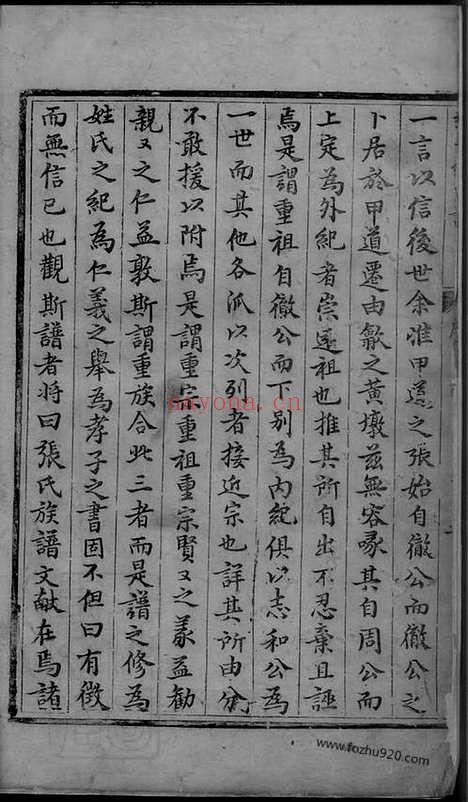 一言以信後世余淮甲道之張始自徹公而徹公之
卜居於甲道遷由歙之黃墩茲無容喙其自周公而
上定為外紀者崇遠祖也推其所自出不忍棄且誣
焉是謂重祖自徹公而下列為內紀俱以志和公為
一世而其他各派以次列者接近宗也詳其所由分
不敢援以附焉是謂重宗重祖重宗賢又之義益勸
親又之仁益敦斯謂重族合此三者而是譜之修為
姓氏之紀為仁義之舉為孝子之書固不但曰有徵
而無信已也觀斯譜者將曰張氏族譜文献在焉諸
nayona.cn
www.fozhu920.com